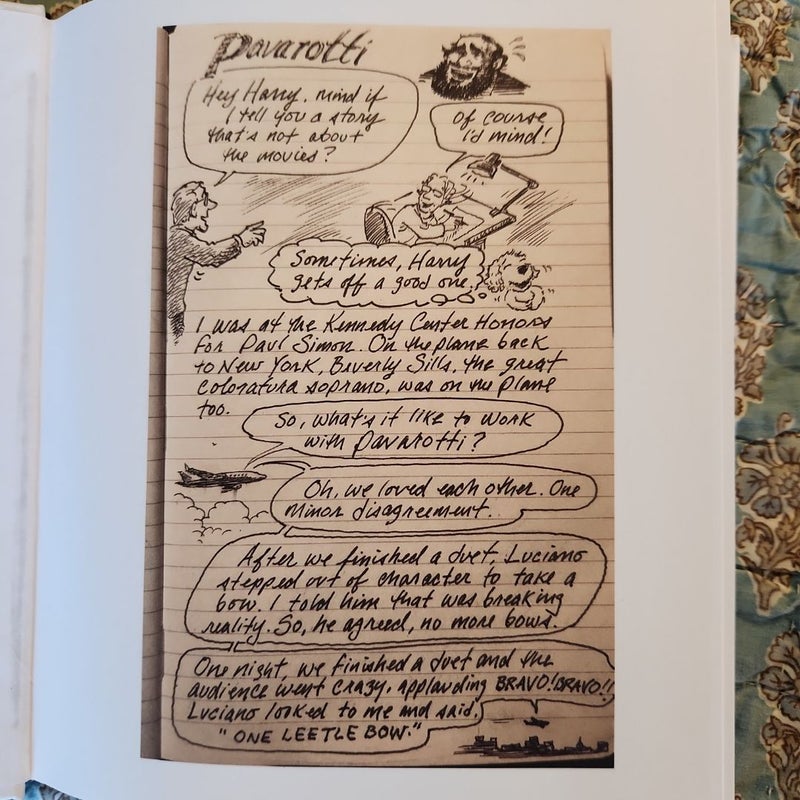 Pavarotti
Hey Harry, mind if
I tell you a story
that's not about
the movies?
of course
i'd mind!
Sometimes, Harry
gets off a good one.
I was at the Kennedy Center Honors
for Paul Simon. On the plane back
to New York, Beverly Sills, the great
coloratura soprano, was on the plane
too.
So, what's it like to work
with Pavarotti?
Oh, we loved each other. One
minor disagreement.
After we finished a duet, Luciano
stepped out of character to take a
bow. I told him that was breaking
reality. So, he agreed, no more bows.
One night, we finished a duet and the
audience went crazy, applauding BRAVO! BRAVO!!
Luciano looked to me and said,
"ONE LEETLE BOW."